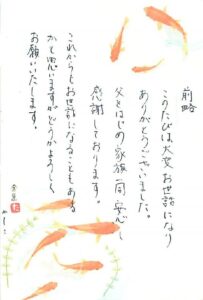 前略
このたびは大変お世話になり
ありがとうございました。
父をはじめ家族一同安心し
感謝しております。
これからもお世話になることもある
かと思いますがどうかよろしく
お願いいたします。